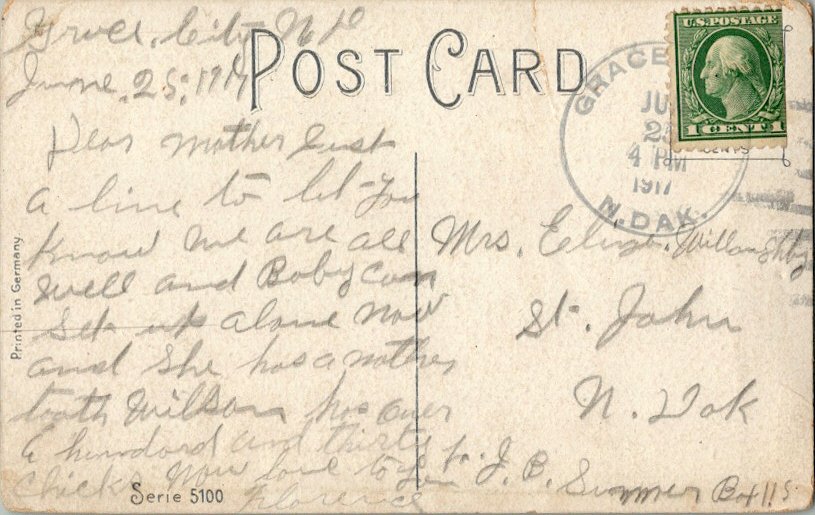 Grace City N D
June 25, 1917
POST CARD
U.S. POSTAGE
1 CENT 1
CENTS
GRACE
JU
2
4 PM
1917
N. DAK.
Dear Mother Just
a line to let You
Know We are all
well and Baby Can
Set up alone Now
and She has a nother
tooth Willson has over
a hundord and thirty
chicks Now love to you
Florence
Mrs. Eliza. Willoughby
St. John
N. Dak
J. B. Summer Box 115
Printed in Germany
Serie 5100